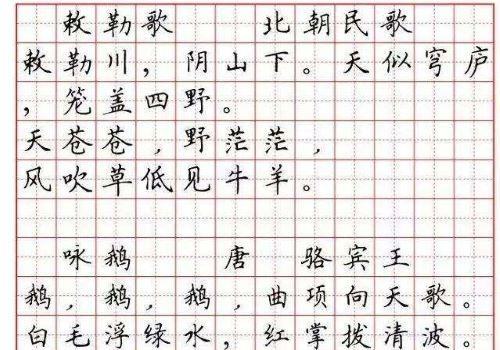 敕勒歌 北朝民歌
敕勒川，阴山下。天似穹庐
，笼盖四野。
天苍苍，野茫茫，
风吹草低见牛羊。
咏鹅 唐 骆宾王
鹅，鹅，鹅，曲项向天歌。
白毛浮绿水，红掌拨清波。